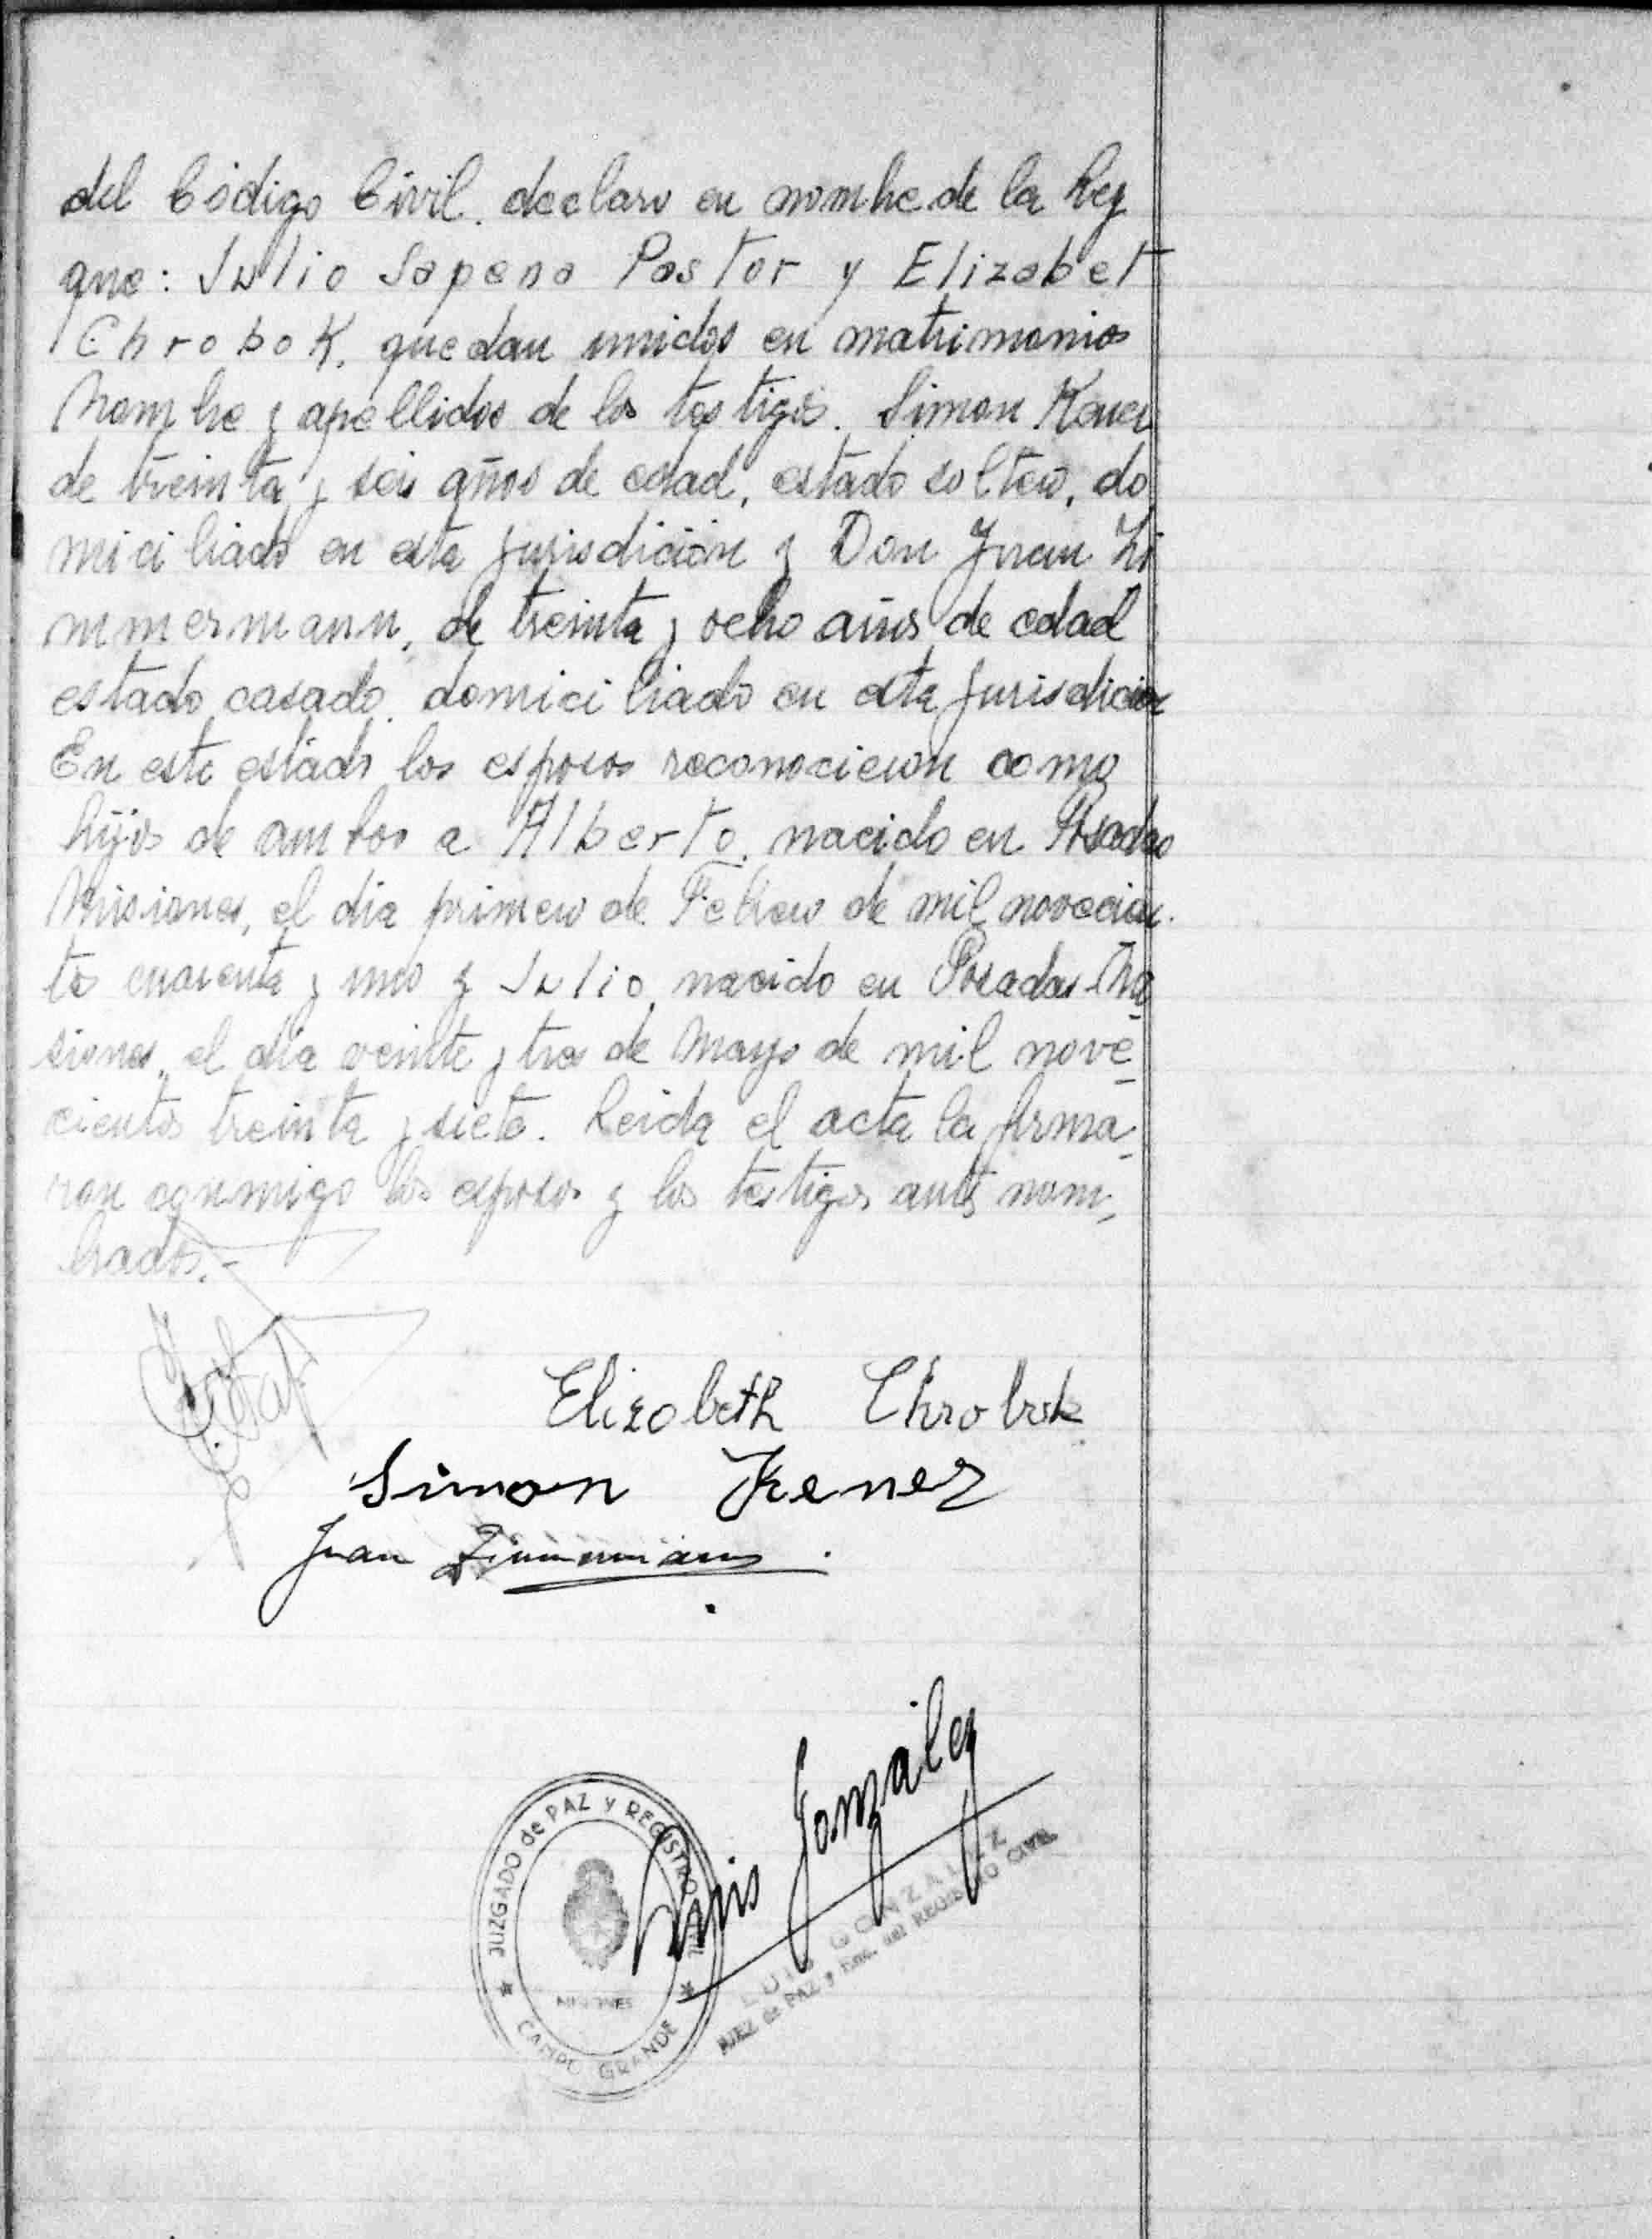 del Código Civil. declaro en nombre de la Ley
que: Julio Sapena Pastor y Elizabet
Chrobok. quedan unidos en matrimonio
Nombre y apellidos de los testigos. Simon Kener
de treinta y seis años de edad, estado soltero, do
miciliado en esta jurisdición y Don Juan Zi
mmermann, de treinta y ocho años de edad
estado casado. domiciliado en esta jurisdicion
En este estado los esposos reconocieron como
hijos de ambos a Alberto, nacido en Posadas
Misiones, el dia primero de Febrero de mil novecien-
tos cuarenta y uno y Julio, nacido en Posadas Mi-
siones, el dia veinte y tres de Mayo de mil nove-
cientos treinta y siete. Leida el acta la firma-
ron conmigo los esposos y los testigos antes nom-
brados.-
Elizabeth Chrobok
Simon Kener
Juan Zimmermann.
Luis Gonzalez
JUZGADO de PAZ y REGISTRO
MISIONES
CAMPO GRANDE
LUIS GONZALEZ
JUEZ de PAZ y Enc. del REGISTRO CIVIL